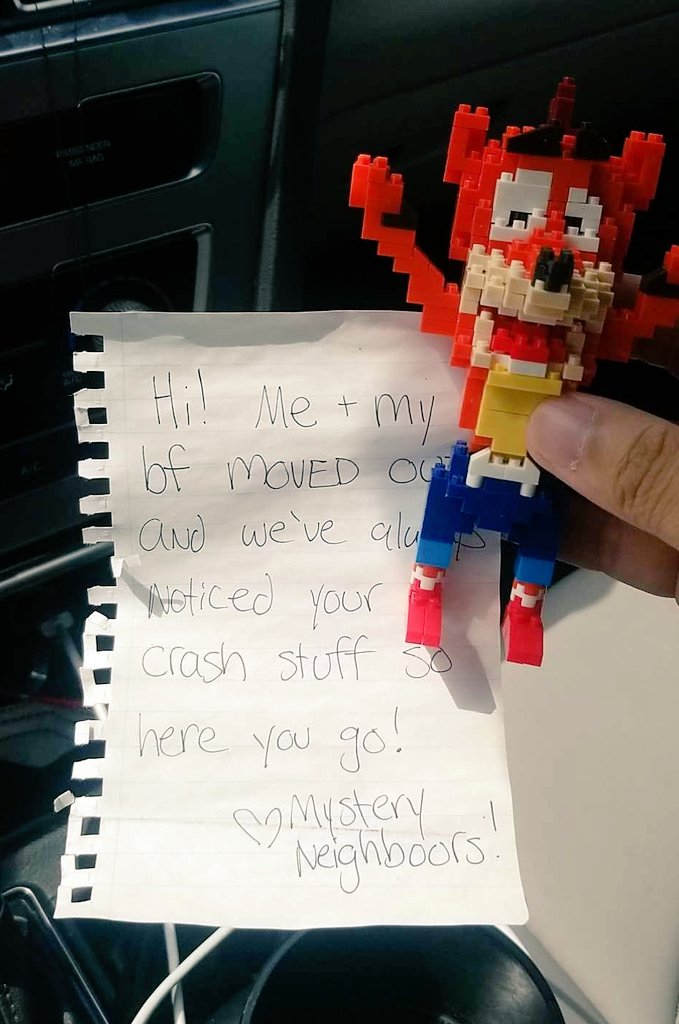 PASSENGER
AIR BAG
A/C
Hi! Me + my
bf MOVED OU
and we've always
Noticed your
crash stuff so
here you go!
♡ Mystery
Neighboors!